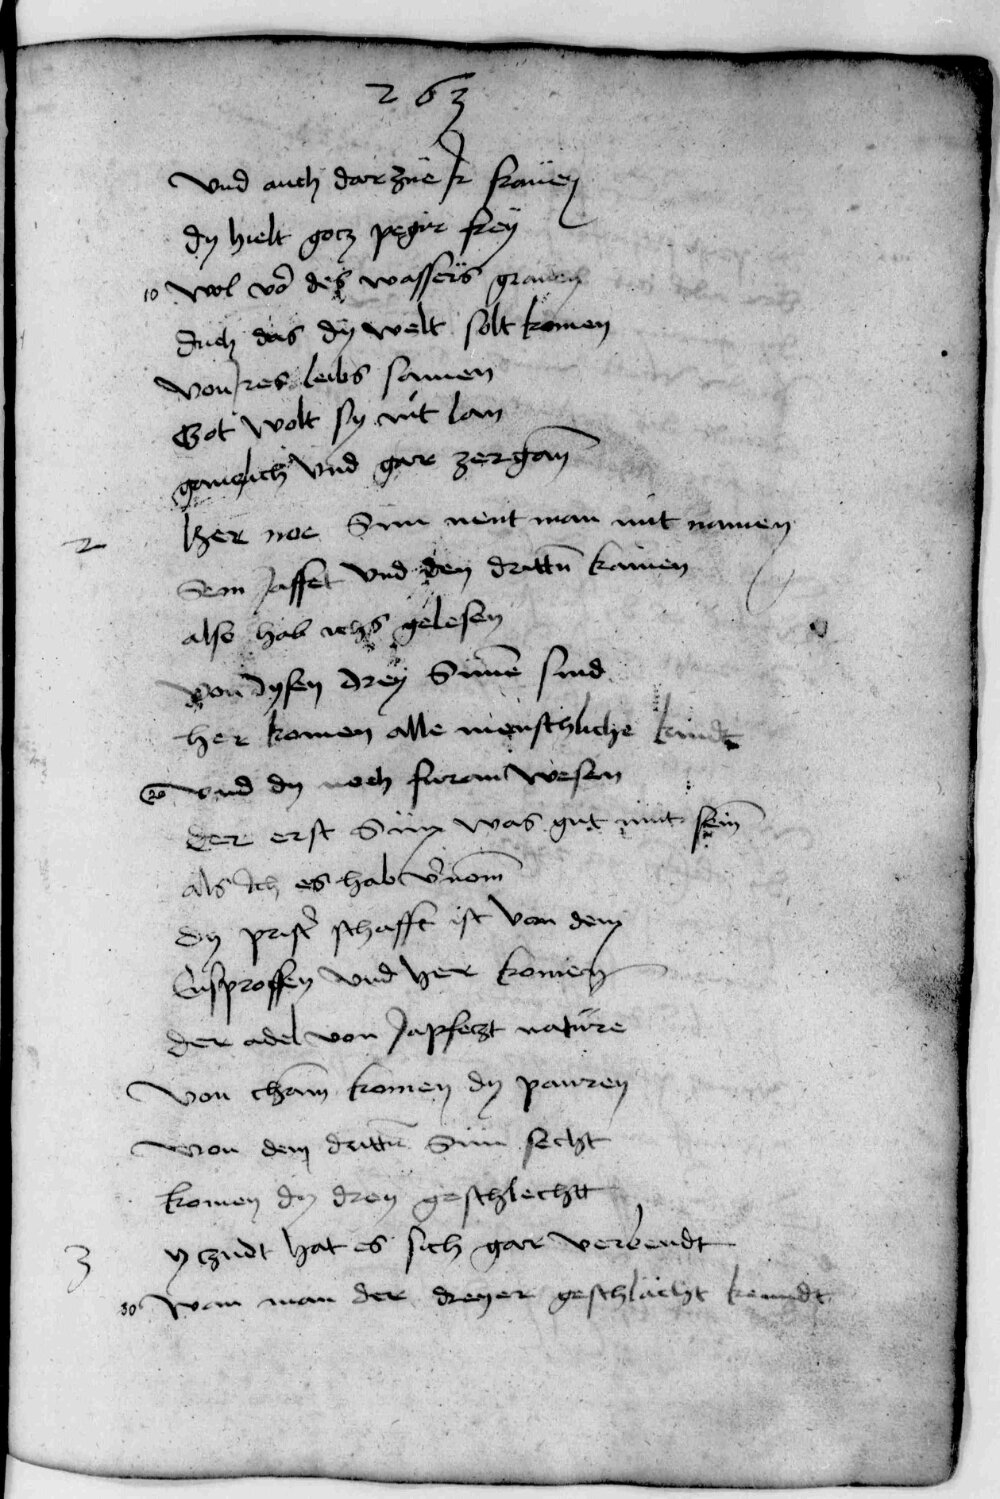 263
Vnd auch dar zue Jr frauen
dy hielt gotz pegir frey
10 wol vor des wassers grauen
Auch das dy welt solt komen
von Jres leibs samen
Got wolt sy nit lan
gantzlich vnd gar zergan
2 Her noe Sun nent man mit namen
Sem Jaffet vnd den drittn kamen
also hab ichs gelesen
von dysen drey Sunen sind
her komen alle menschliche kindt
20 vnd dy noch furan wesen
der erst Sun was gut mit sein
als Ich es hab vernom
dy prister schafft ist von dem
Ensprossen vnd her komen
der adel von Japfeczt nature
von cham komen dy pawren
von dem drittn Sun secht
komen dy drey geschlechtt
3 yczudt hat es sich gar verbendt
30 wan man der dreyer geschlacht kenndt